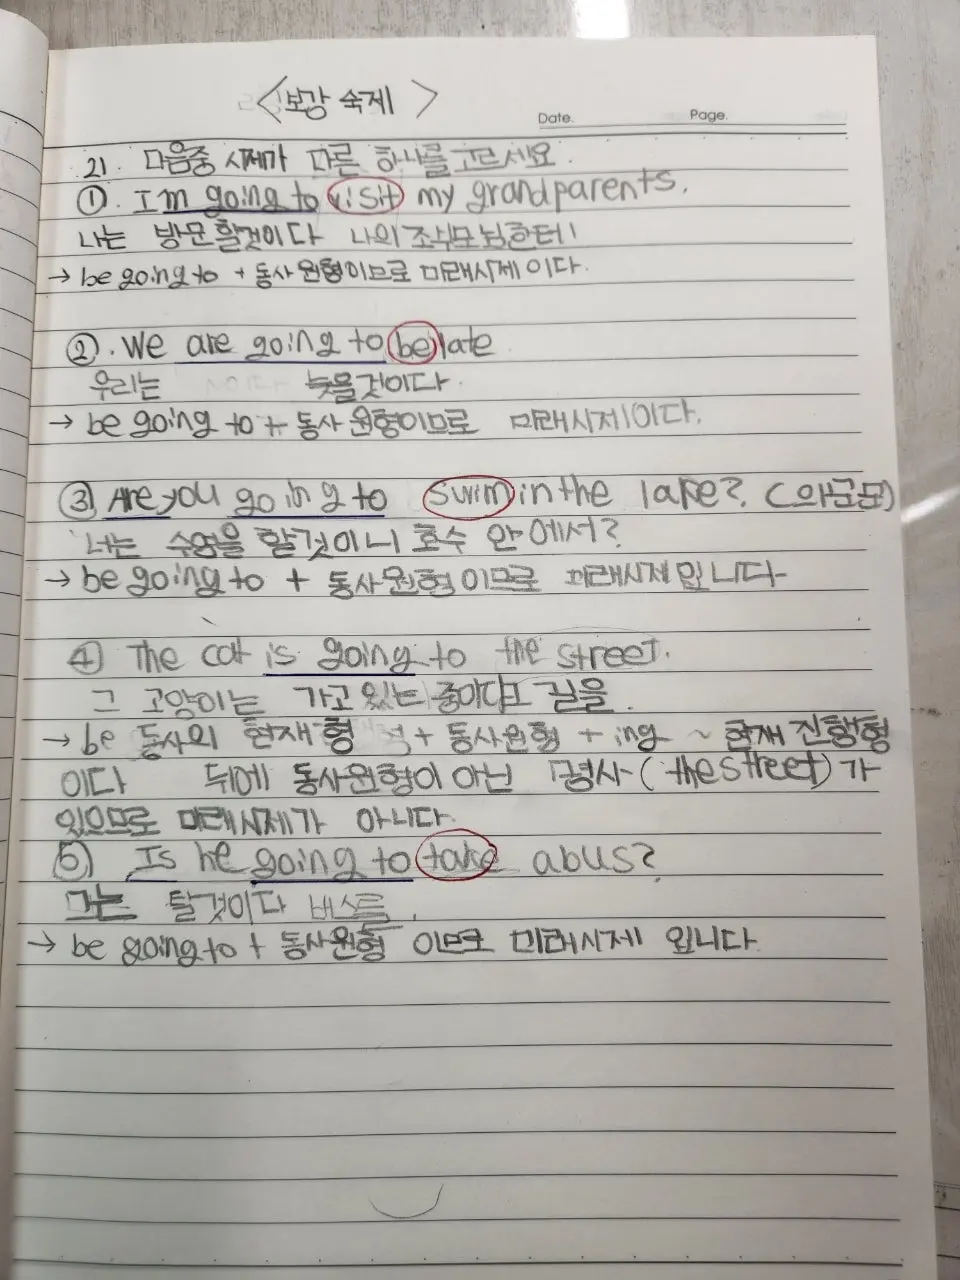 <보강 숙제>
Date. Page.
21. 다음중 시제가 다른 하나를 고르세요.
①. I'm going to visit my grandparents.
나는 방문할것이다 나의 조부모님한테
→ be going to + 동사원형이므로 미래시제이다.
②. We are going to be late
우리는 늦을것이다.
→ be going to + 동사원형이므로 미래시제이다.
③ Are you going to swim in the lake? (의문문)
너는 수영을 할것이니 호수 안에서?
→ be going to + 동사원형이므로 미래시제입니다
④ The cat is going to the street.
그 고양이는 가고 있는 중이다 길을.
→ be 동사의 현재형 + 동사원형 + ing ~ 현재 진행형
이다 뒤에 동사원형이 아닌 명사(the street)가
있으므로 미래시제가 아니다.
⑤ Is he going to take a bus?
그는 탈것이다 버스를.
→ be going to + 동사원형 이므로 미래시제 입니다.